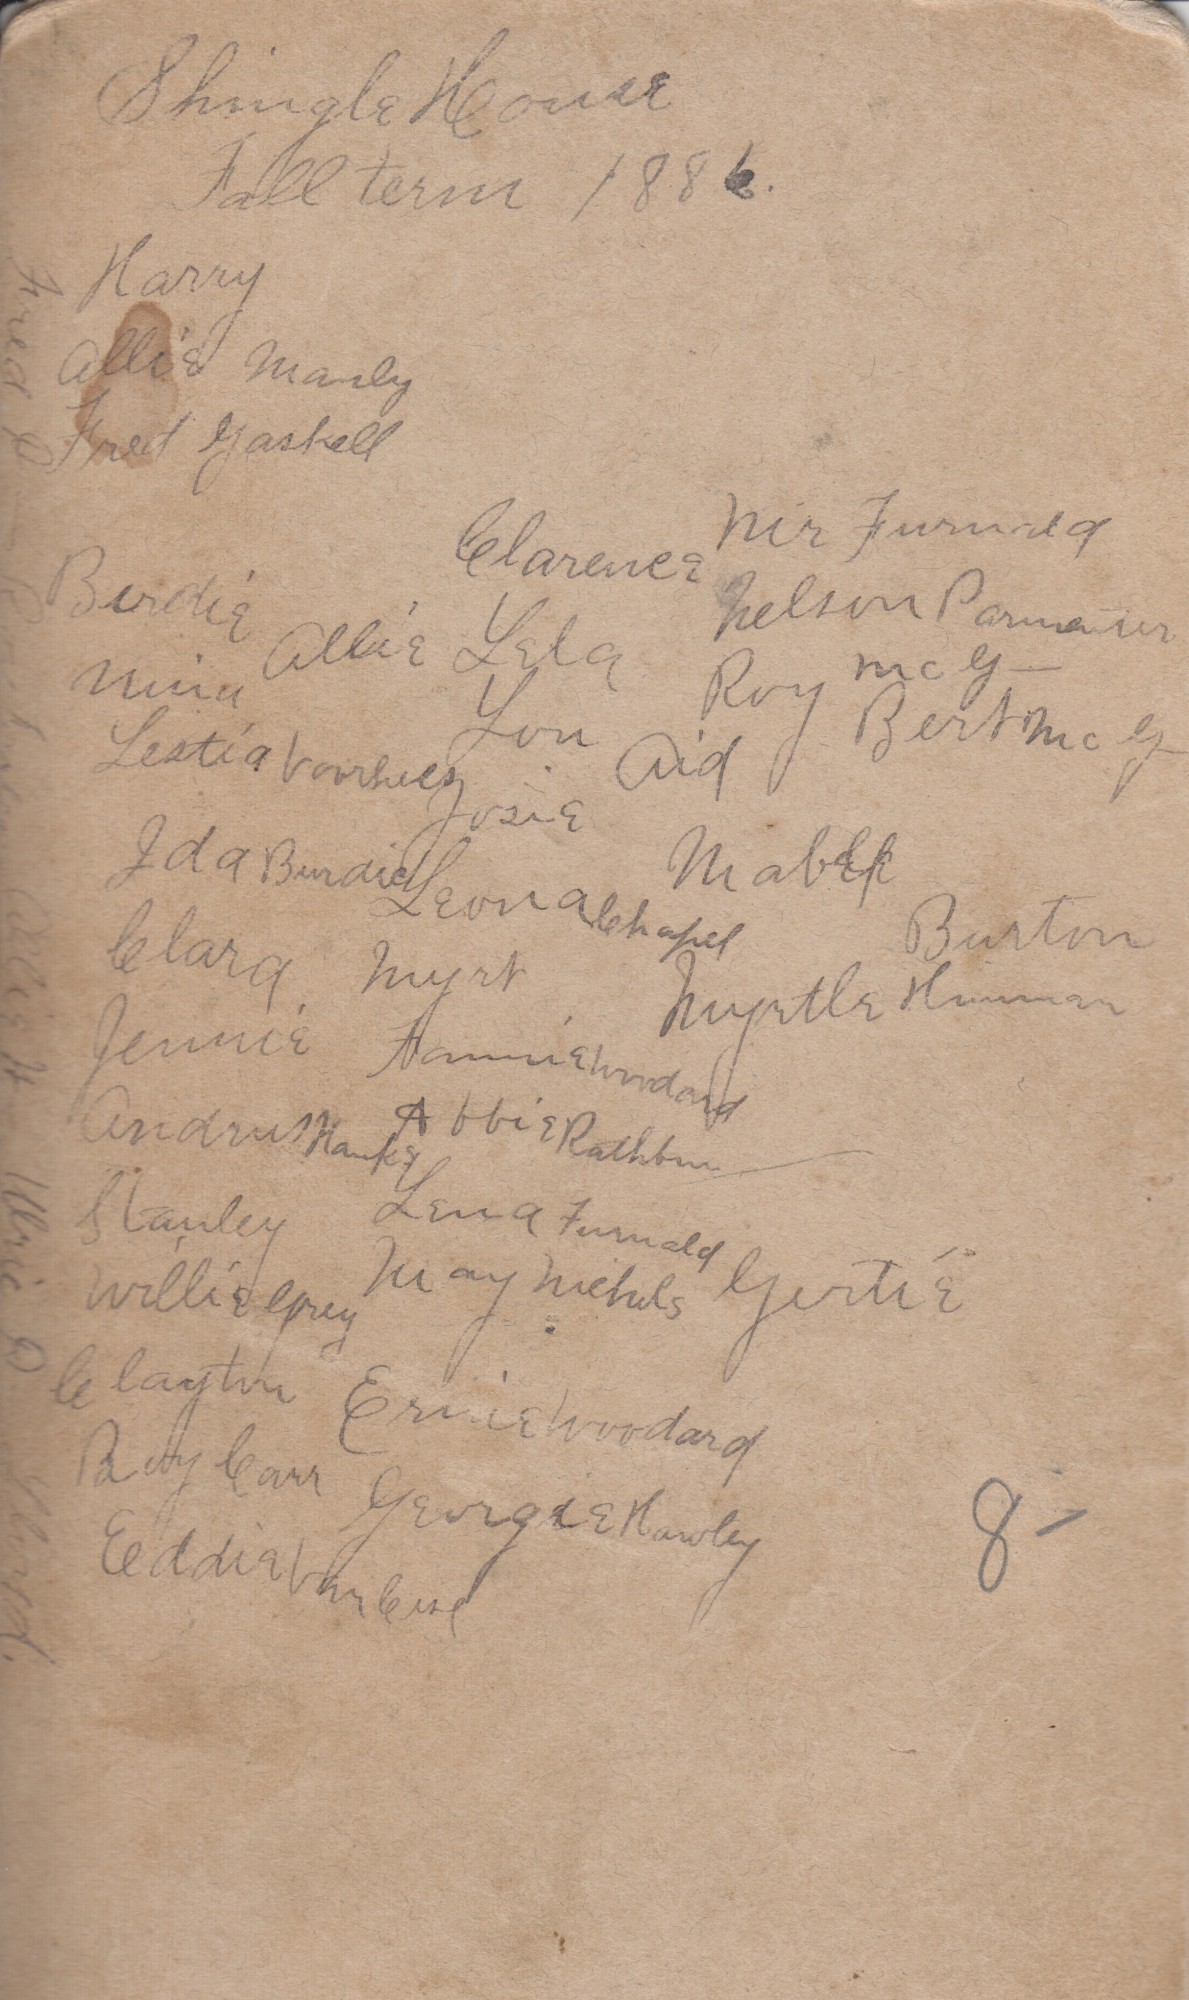 Shingle House
Fall term 1886.
Harry
Allie Manly
Fred Gaskell
Clarence Nir Furnald
Birdie Nelson Parmenter
Allie Lela Roy McG—
Nina Lou Bert McG—
Lestia Voorhees Aid
Josie
Ida Burdic Mabel
Leona Chapel Burton
Clara Myrt Myrtle Hinman
Jennie Fannie Woodard
Andrus Hawks Abbie Rathbun
Stanley Lena Furnald
Willie Grey May Nichols Gertie
Clayton Ernie Woodard
Ray Carr Georgie Hawley
Eddie Van Cise
8-
Fred